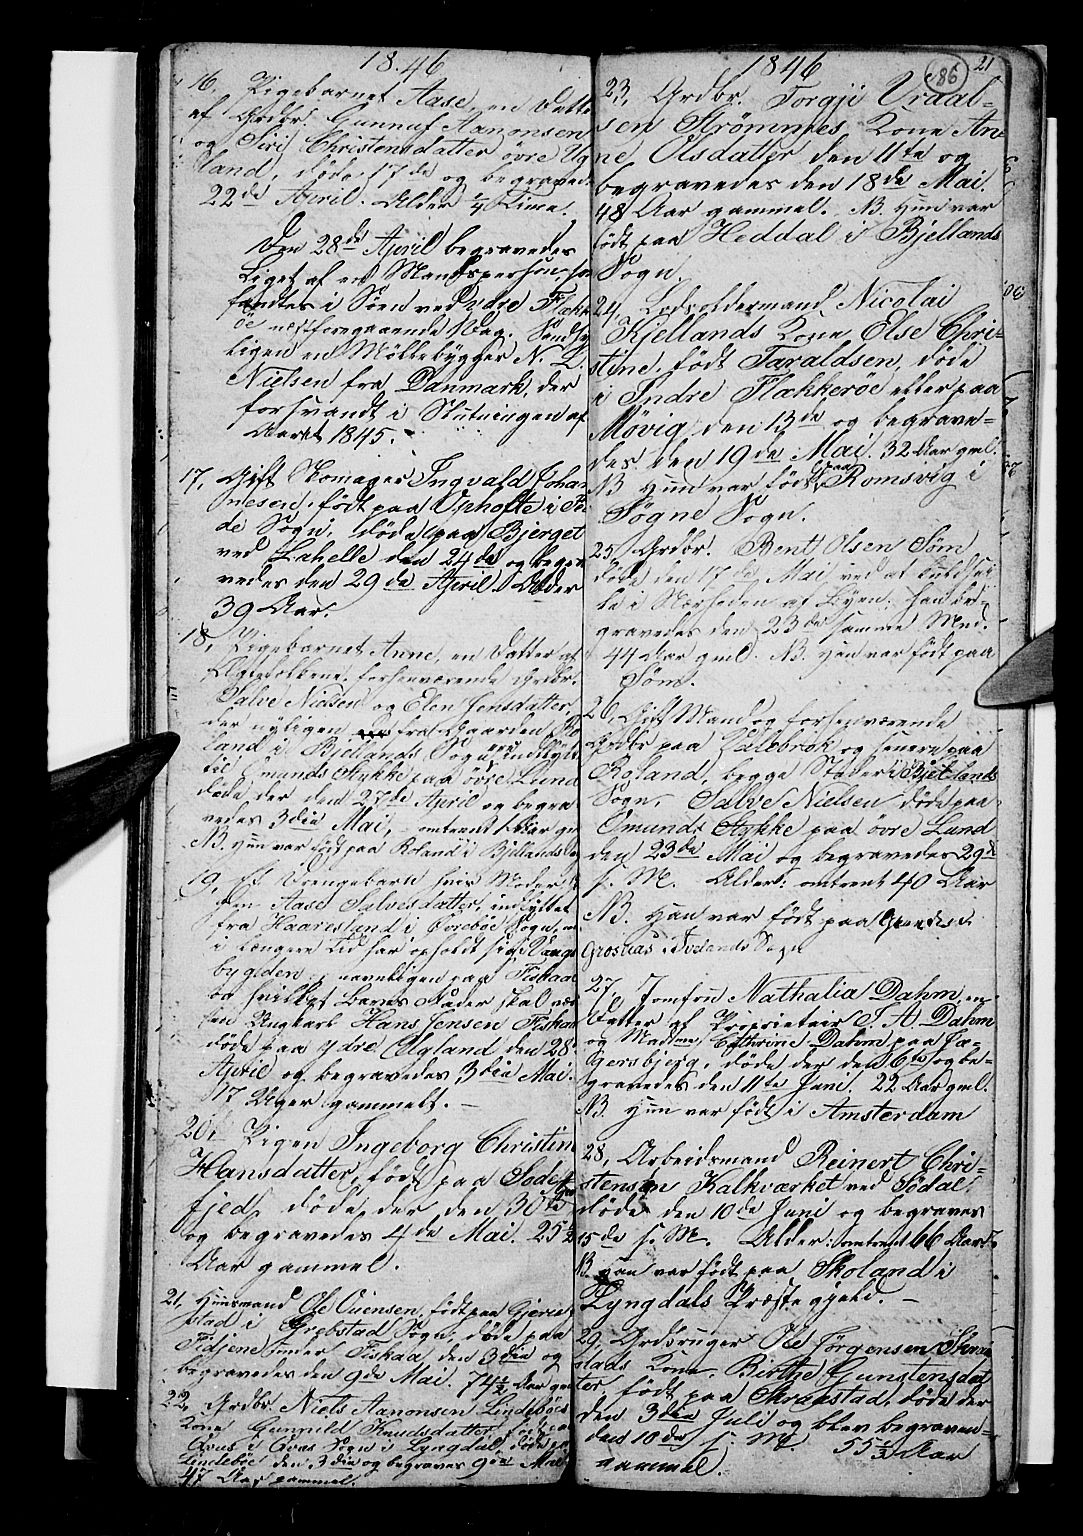 1846
16, Pigebarnet Aase, en Datter
af Grdbr. Gunnuf Aanonsen
og Siri Christensdatter øvre Ug
land, døde 17de og begravedes
22de April. Alder ¼ Time.
Den 28de April begravedes
Liget af en Mandsperson, som
fandtes i Søen ved Ydre Flække
øe næstforegaaende Dag. Sandsyn
ligen en Møllebygger N. L.
Nielsen fra Danmark, der
forsvandt i Slutningen af
Aaret 1845.
17, Gift Skomager Ingvald Johan
nesen, født paa Ophofte i
de Sogn, døde paa Bjerget
ved Lahelle den 24de og begra
vedes den 29de April. Alder
39 Aar.
18, Pigebarnet Anne, en Datter af
Ægtefolkene, forhenværende Grdbr.
Salve Nielsen og Elen Jensdatter,
der nyligen fra Gaarden Ro
land i Bjellands Sogn indflytt
til Omunds Stykke paa øvre Lund
døde der den 27de April og begra
vedes 3die Mai, omtrent 1 Aar gml
NB. Hun var født paa Roland i Bjellands Sogn
19, Et Drengebarn hvis Moder
Aase Salvesdatter, indflyttet
fra Haareslund i Øvrebøe Sogn,
i længere Tid har opholdt sig i Vaags
bygden, navnligen paa Fiskaa
og hvilket Barns Fader skal vær
en Ungkarl Hans Jensen Fiskaa
døde paa Ydre Augland den 28
April og begravedes 3die Mai.
17 Uger gammelt. —
20, Pigen Ingeborg Christine
Hansdatter, født paa Søde
fjed, døde der den 30te
og begravedes 4de Mai. 25½
Aar gammel.
21, Huusmand Ole Evensen, født paa
stad i Grebstad Sogn, døde paa
Fidjene under Fiskaa den 3die og
begravedes den 9de Mai. 74½ Aar gml
22, Grdbr. Niels Aanonsen Lindebøes
Kone Gunnild Knudsdatter, født paa
Qvas i Qvas Sogn i Lyngdal, døde paa
Lindebøe den 3die og begraves 9de Mai
47 Aar gammel.
1846
86
21
23, Grdbr. Torgji Vraal-
sen Strømmes Kone Ane
ne Olsdatter den 11te og
begravedes den 18de Mai.
48 Aar gammel. NB. Hun var
født paa Heddal i Bjellands
Sogn.
24, Lodsoldermand Nicolai
Kjellands Kone Else Chri-
stine, født Taraldsen, døde
i Indre Flækkerøe eller paa
Møvig den 13de og begrave-
des den 19de Mai. 32 Aar gml.
NB Hun var født paa Romsvig i
Søgne Sogn.
25, Grdbr. Bent Olsen Søm
døde den 17de Mai ved at kuldsei
le i Nærheden af Byen; han be-
gravedes den 23de samme Md.
44 Aar gml. NB. Han var født paa
Søm.
26, Gift Mand og forhenværende
Grdbr paa Valebrok og senere paa
Roland, begge Steder i Bjellands
Sogn, Salve Nielsen døde paa
Omunds Stykke paa øvre Lund
den 23de Mai og begravedes 29de
s. M. Alder: omtrent 40 Aar
NB. Han var født paa
Grosaas i Sogn
27, Jomfru Nathalia Dahm, en
Datter af Proprietair I. A. Dahm
og Madme Cathrine Dahm paa Ja-
gersbjerg, døde der den 6te og be-
gravedes den 11te Juni. 22 Aar gml.
NB. Hun var født i Amsterdam
28, Arbeidsmand Reinert Chri-
stensen Kalkværket ved Sødal.
døde den 10de Juni og begraves
15de s. M. Alder: omtrent 66 Aar.
NB. Han var født paa Skoland i
Lyngdals Præstegjeld. —
29, Grdbruger Ole Jørgensen Skraa
stads Kone, Birthe Gunstensdat
ter, født paa Skraastad, døde der
den 3die Juli og blev begraven
den 10de s. M. 55¾ Aar
gammel